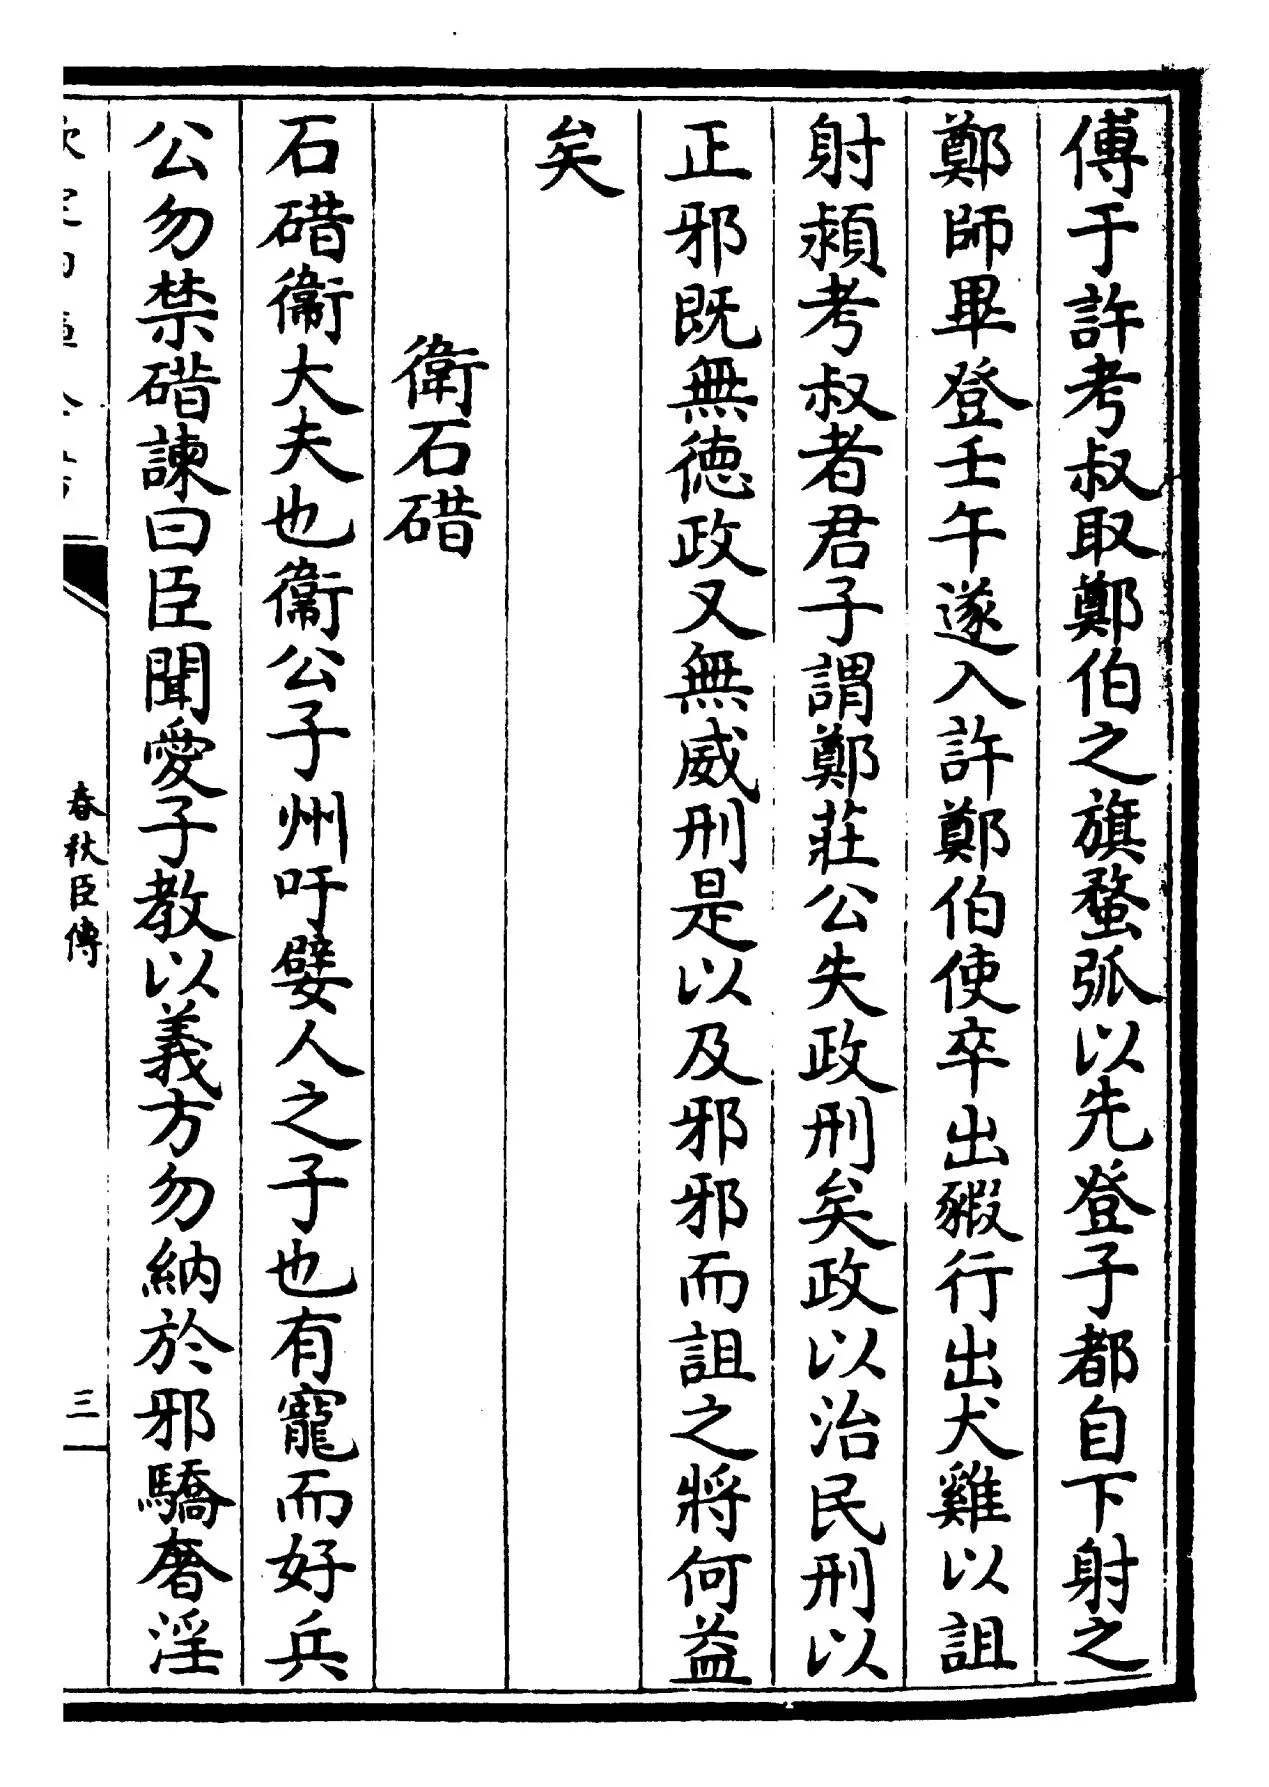 傅于許考叔取鄭伯之旗蝥弧以先登子都自下射之
鄭師畢登壬午遂入許鄭伯使卒出豭行出犬雞以詛
射潁考叔者君子謂鄭莊公失政刑矣政以治民刑以
正邪既無德政又無威刑是以及邪邪而詛之將何益
矣
衛石碏
石碏衞大夫也衞公子州吁嬖人之子也有寵而好兵
公勿禁碏諫曰臣聞愛子教以義方勿納於邪驕奢淫
春秋臣傳
三